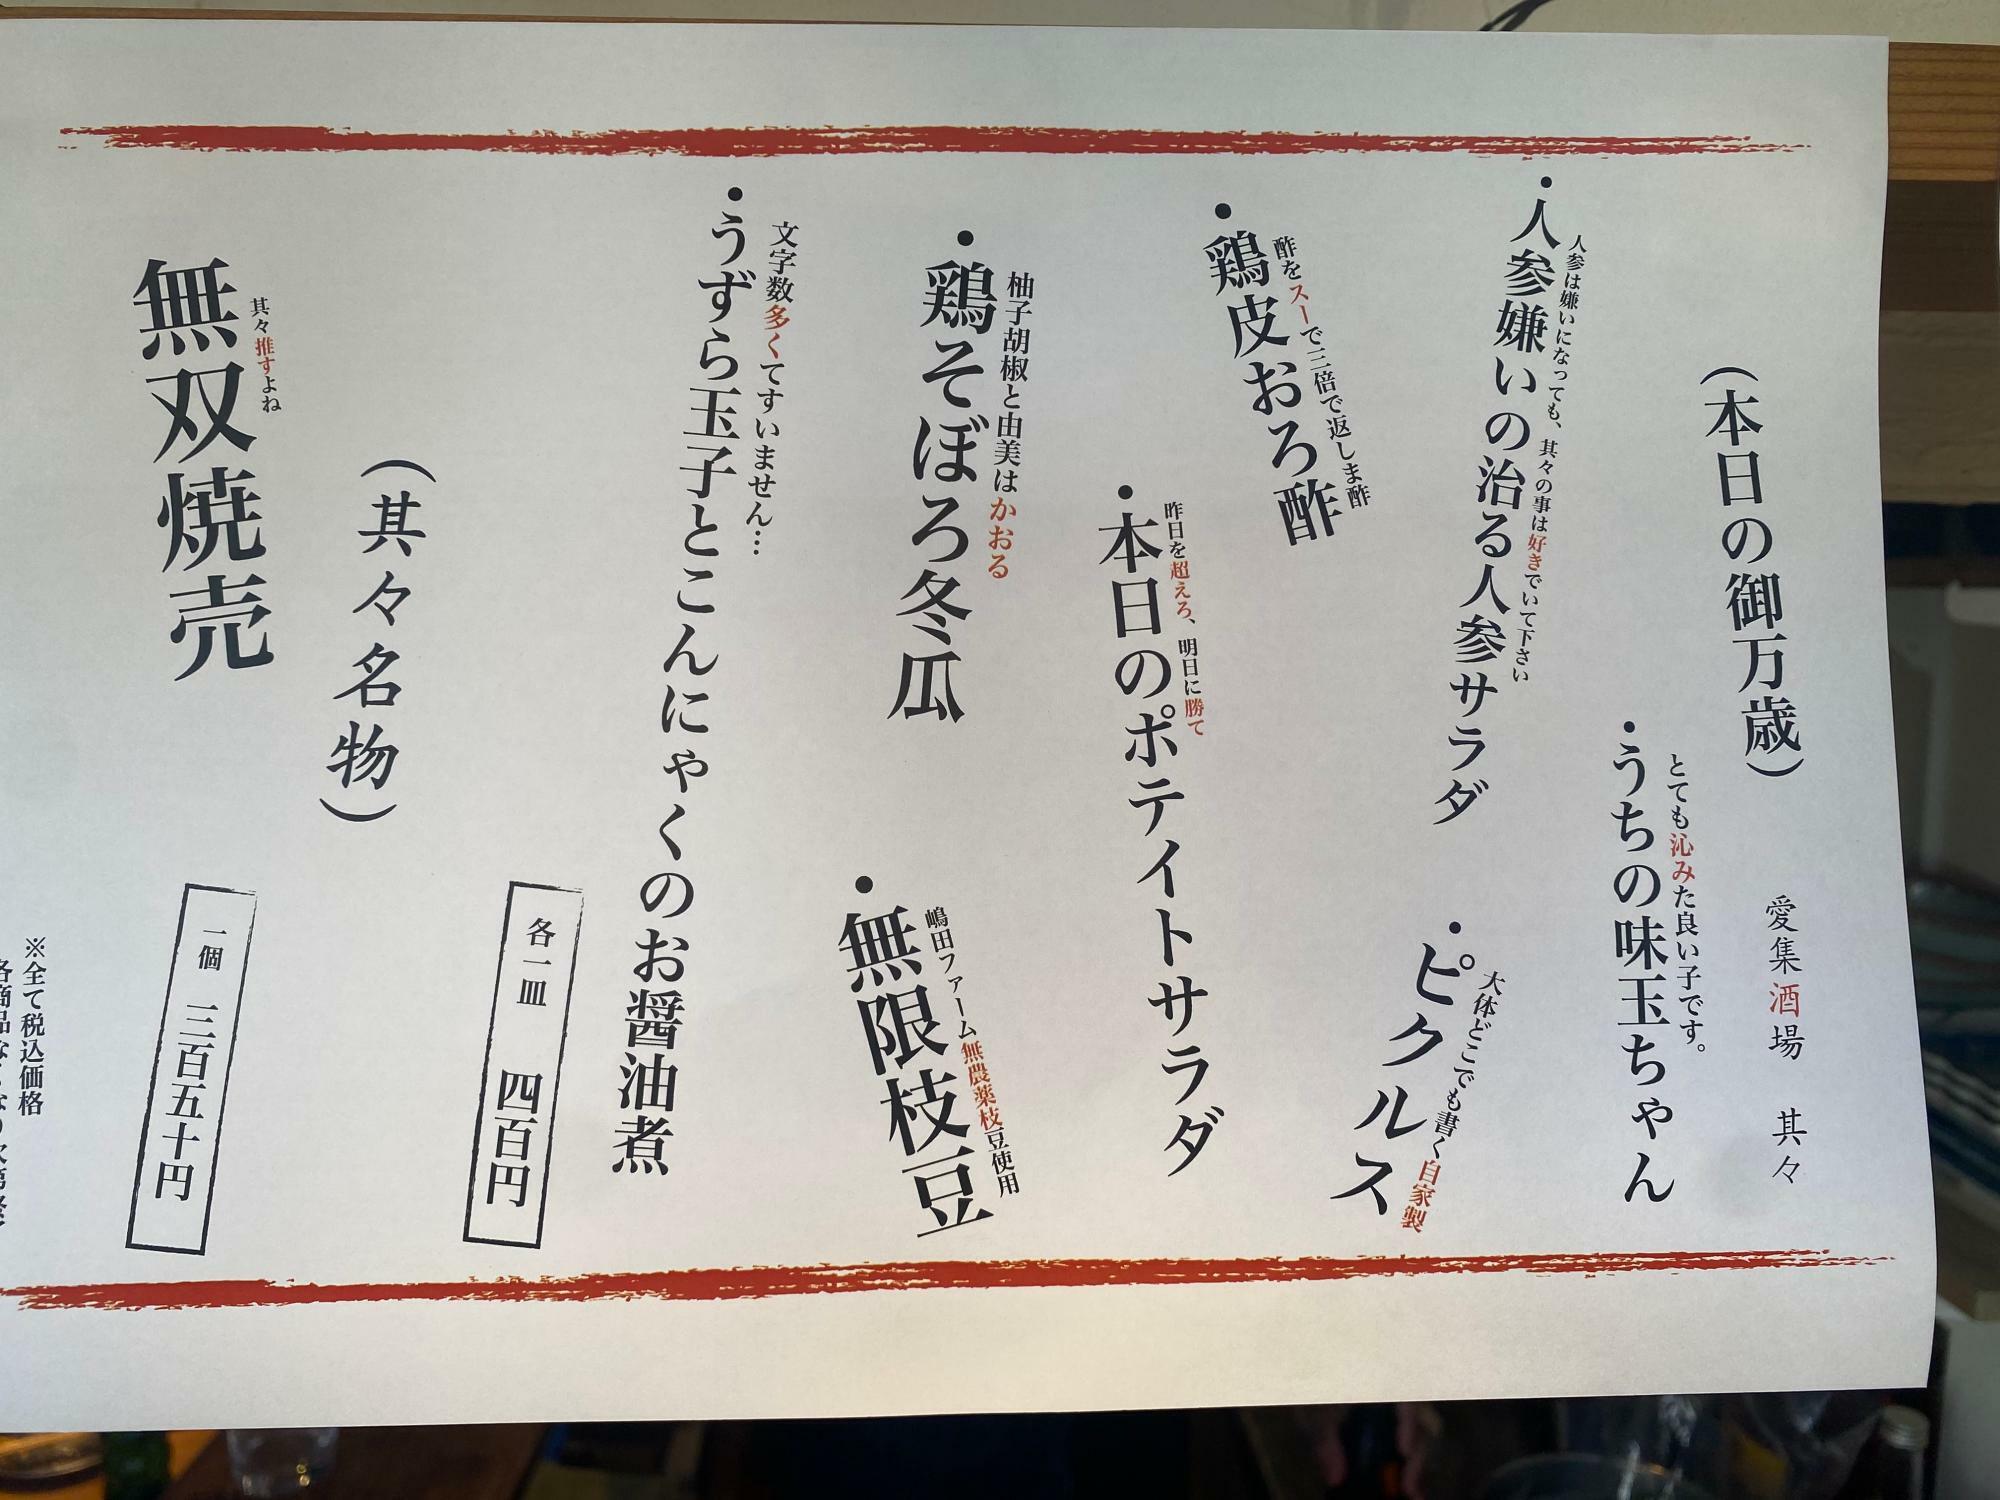 （本日の御万歳）
愛集酒場 其々
とても沁みた良い子です。
・うちの味玉ちゃん
人参は嫌いになっても、其々の事は好きでいて下さい
・人参嫌いの治る人参サラダ
大体どこでも書く自家製
・ピクルス
酢をスーで三倍で返しま酢
・鶏皮おろ酢
昨日を超えろ、明日に勝て
・本日のポテイトサラダ
柚子胡椒と由美はかおる
・鶏そぼろ冬瓜
嶋田ファーム無農薬枝豆使用
・無限枝豆
文字数多くてすいません…
・うずら玉子とこんにゃくのお醤油煮
各一皿 四百円
（其々名物）
其々推すよね
無双焼売
一個 三百五十円
※全て税込価格